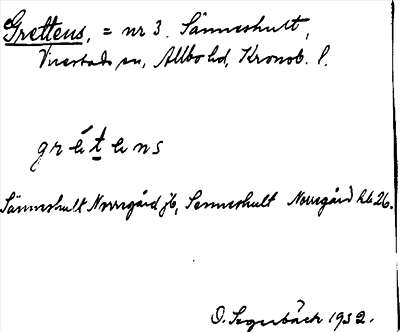 Grettens, = nr 3. Sånneshult,
Virestads sn, Allbo hd, Kronob. l.
grètens
Sånneshult Norrgård jb, Senneshult Norrgård kb 26.
O. Segerbäck 1932.